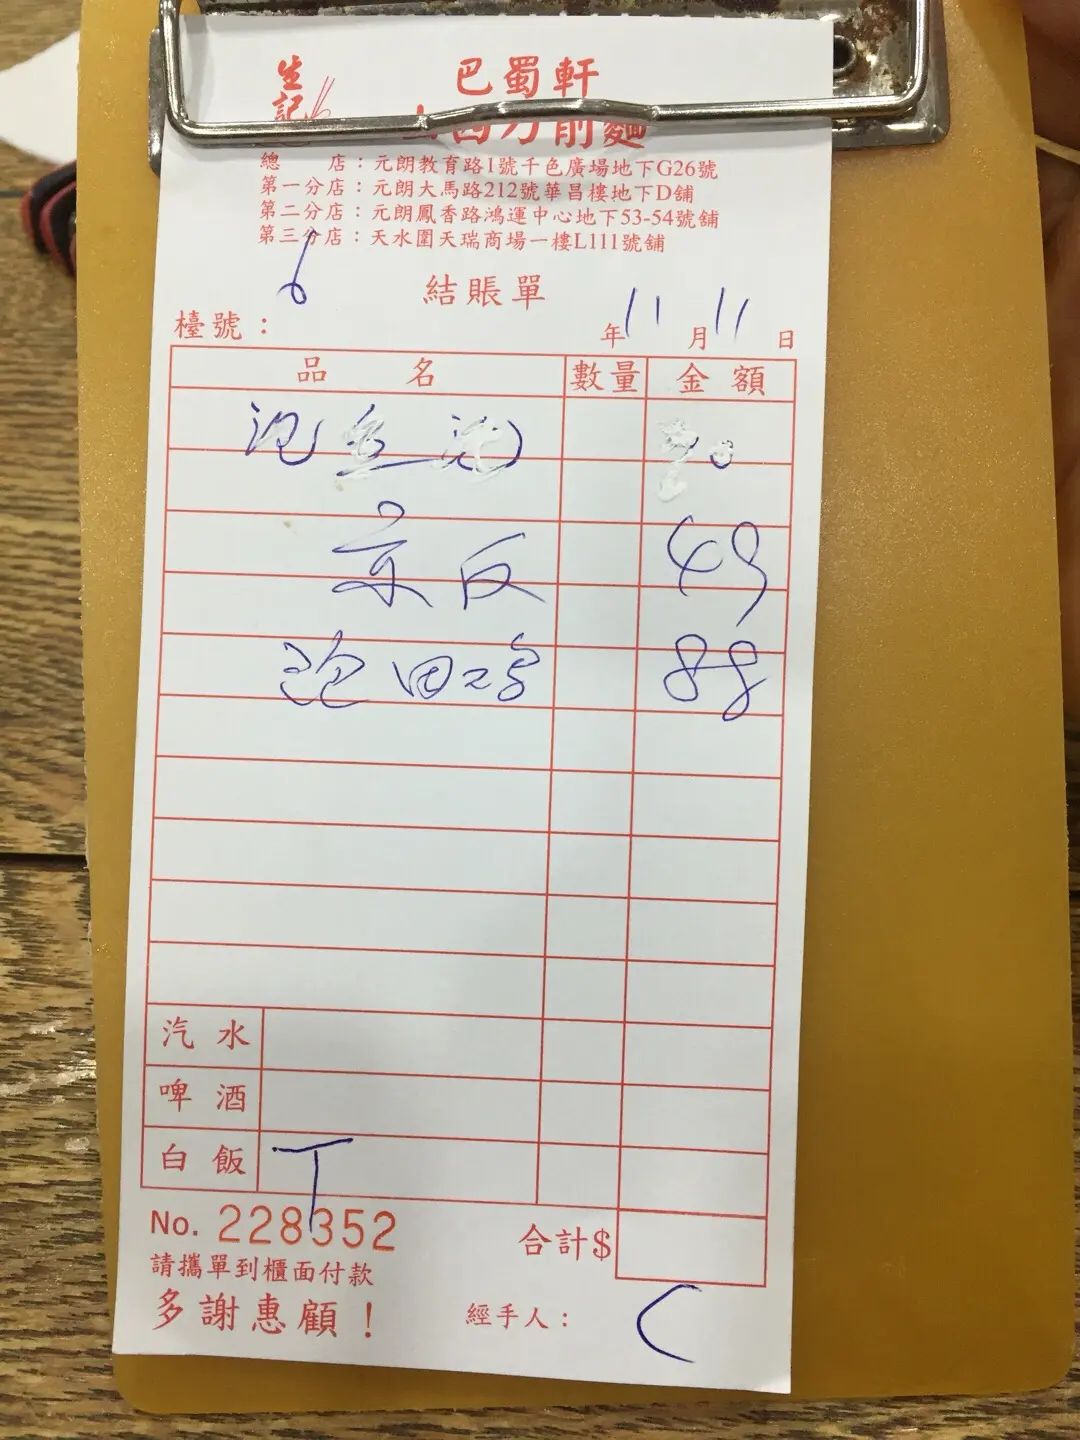 生記
巴蜀軒
總 店：元朗教育路1號千色廣場地下G26號
第一分店：元朗大馬路212號華昌樓地下D舖
第二分店：元朗鳳香路鴻運中心地下53-54號舖
第三分店：天水圍天瑞商場一樓L111號舖
結賬單
檯號： 6
年 11 月 11 日
品 名 數量 金額
京 49
88
汽水
啤酒
白飯 T
No. 228352
合計$
請攜單到櫃面付款
多謝惠顧！
經手人：